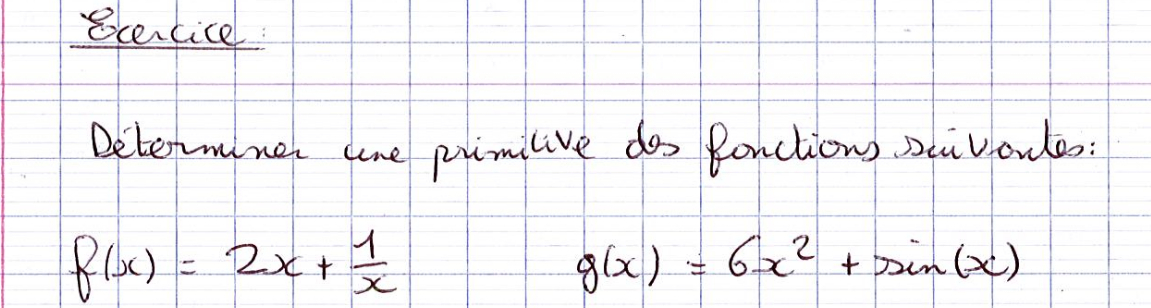 Exercice :
Déterminer une primitive des fonctions suivantes :
f(x) = 2x + 1/x    g(x) = 6x² + sin(x)